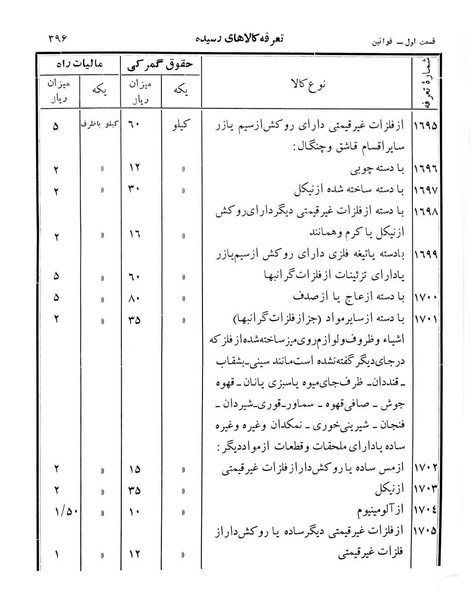 قسمت اول ــ قوانین تعرفه کالاهای رسیده ۳۹۶
شمارهٔ تعرفه نوع کالا حقوق گمرکی مالیات راه
یکه میزان ریال یکه میزان ریال
۱۶۹۵ از فلزات غیر قیمتی دارای روکش از سیم یا زر کیلو ۶۰ کیلو باظرف ۵
سایر اقسام قاشق و چنگال:
۱۶۹۶ با دسته چوبی » ۱۲ » ۲
۱۶۹۷ با دسته ساخته شده از نیکل » ۳۰ » ۲
۱۶۹۸ با دسته از فلزات غیر قیمتی دیگر دارای روکش
از نیکل یا کرم و همانند » ۱۶ » ۲
۱۶۹۹ با دسته یا تیغه فلزی دارای روکش از سیم یا زر
یا دارای تزئینات از فلزات گرانبها » ۶۰ » ۵
۱۷۰۰ با دسته از عاج یا از صدف » ۸۰ » ۵
۱۷۰۱ با دسته از سایر مواد (جز از فلزات گرانبها) » ۳۵ » ۲
اشیاء و ظروف و لوازم روی میز ساخته شده از فلز که
در جای دیگر گفته نشده است مانند سینی ـ بشقاب
ـ قنددان ـ ظرف جای میوه یا سبزی یا نان ـ قهوه
جوش ـ صافی قهوه ـ سماور ـ قوری ـ شیردان ـ
فنجان ـ شیرینی خوری ـ نمکدان و غیره و غیره
ساده یا دارای ملحقات و قطعات از مواد دیگر:
۱۷۰۲ از مس ساده یا روکش دار از فلزات غیر قیمتی » ۱۵ » ۲
۱۷۰۳ از نیکل » ۳۵ » ۲
۱۷۰۴ از آلومینیوم » ۱۰ » ۱/۵۰
۱۷۰۵ از فلزات غیر قیمتی دیگر ساده یا روکش دار از
فلزات غیر قیمتی » ۱۲ » ۱